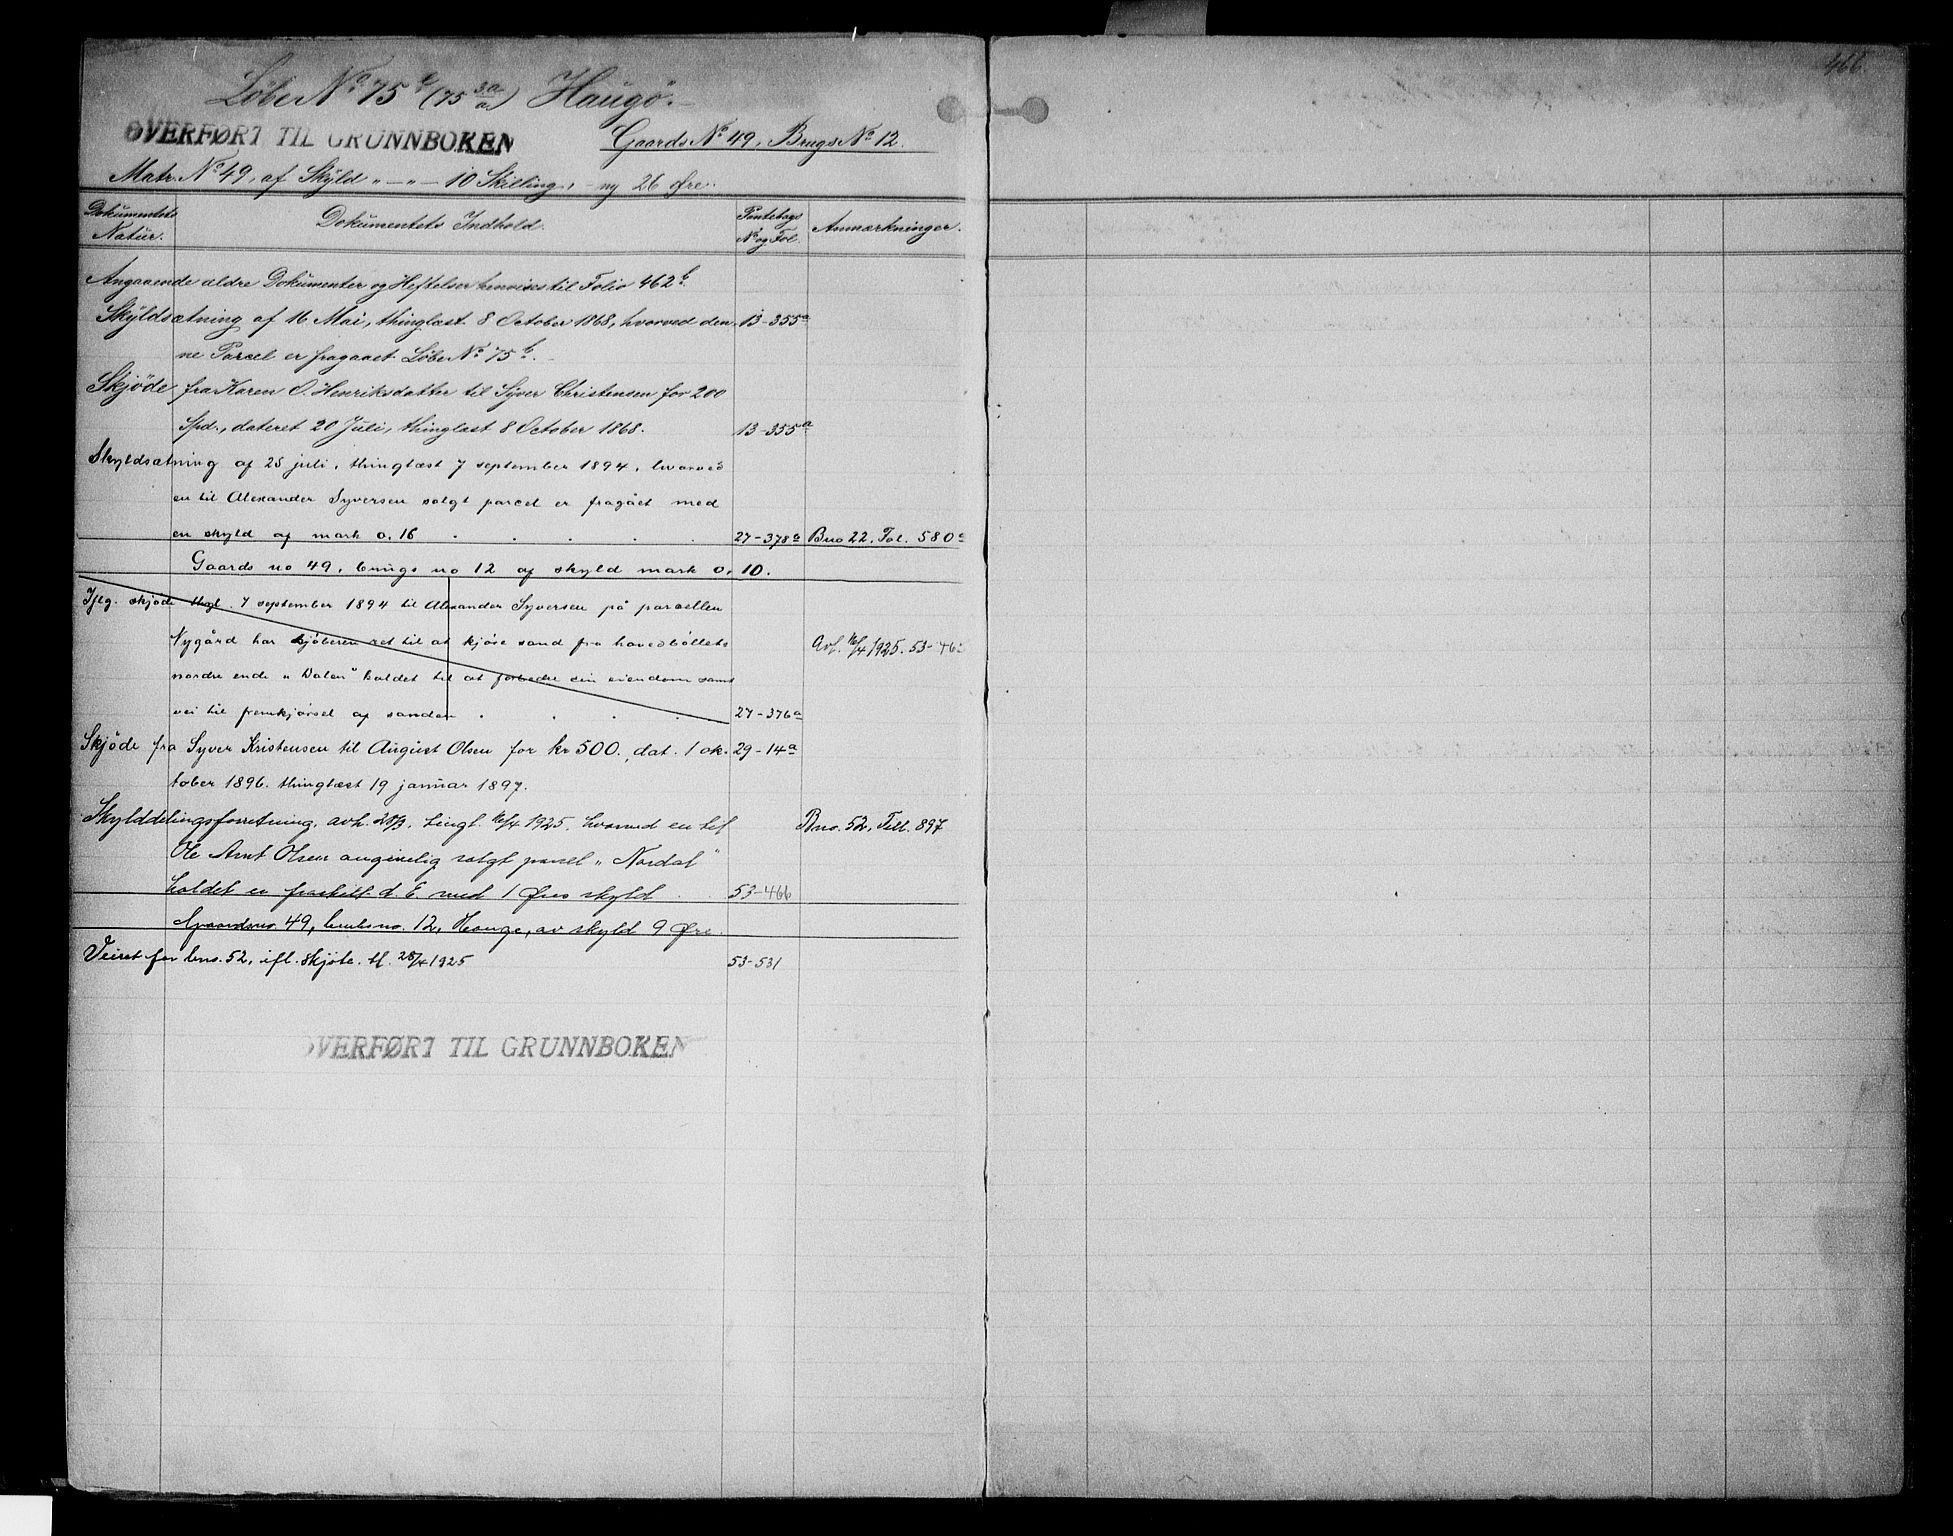 466.
Løbe No 75 e (75 3a/a) Haugø.
OVERFØRT TIL GRUNNBOKEN
Gaards No 49, Brugs No 12.
Matr. No 49, af Skyld „ — „ — 10 Skilling, - ny 26 Øre.
Dokumentets Natur. Dokumentets Indhold. Pantebogs No og Fol. Anmærkninger.
Angaaende ældre Dokumenter og Heftelser henvises til Folio 462 b.
Skyldsætning af 16 Mai, thinglæst 8 October 1868, hvorved den- 13-355a
ne Parcel er fragaaet Løbe No 75 b.
Skjöde fra Karen O. Henriksdatter til Syver Christensen for 200
Spd., dateret 20 Juli, thinglæst 8 October 1868. 13-355a
Skyldsætning af 25 juli, thinglæst 7 september 1894, hvorved
en til Alexander Syversen solgt parcel er fragået med
en skyld af mark 0.16 . . . . . 27-378a Bno 22. Fol. 580a
Gaards no 49, brugs no 12 af skyld mark 0.10.
Iflg. skjöde thgl. 7 september 1894 til Alexander Syversen på parcellen
Nygård har kjöberen ret til at kjöre sand fra hovedböllets Avl. 16/4 1925. 53-46
nordre ende „Dalen" kaldet til at forbedre sin eiendom samt
vei til fremkjørsel af sanden . . . . 27-376a
Skjöde fra Syver Kristensen til August Olsen for kr 500., dat. 1 ok- 29-14a
tober 1896. thinglæst 19 januar 1897.
Skylddelingsforretning, avh. 28/3, tingl. 16/4 1925, hvorved en til Bno. 52, Till. 897
Ole Arnt Olsen angivelig solgt parsel „Nordal"
kaldet er fraskilt d. E. med 1 Øres skyld . 53-466
Gaardsno. 49, bruksno. 12, Hauge, av skyld 9 Øre.
Veiret for bno. 52, ifl. skjöte tl. 28/4 1925 53-531
OVERFØRT TIL GRUNNBOKEN